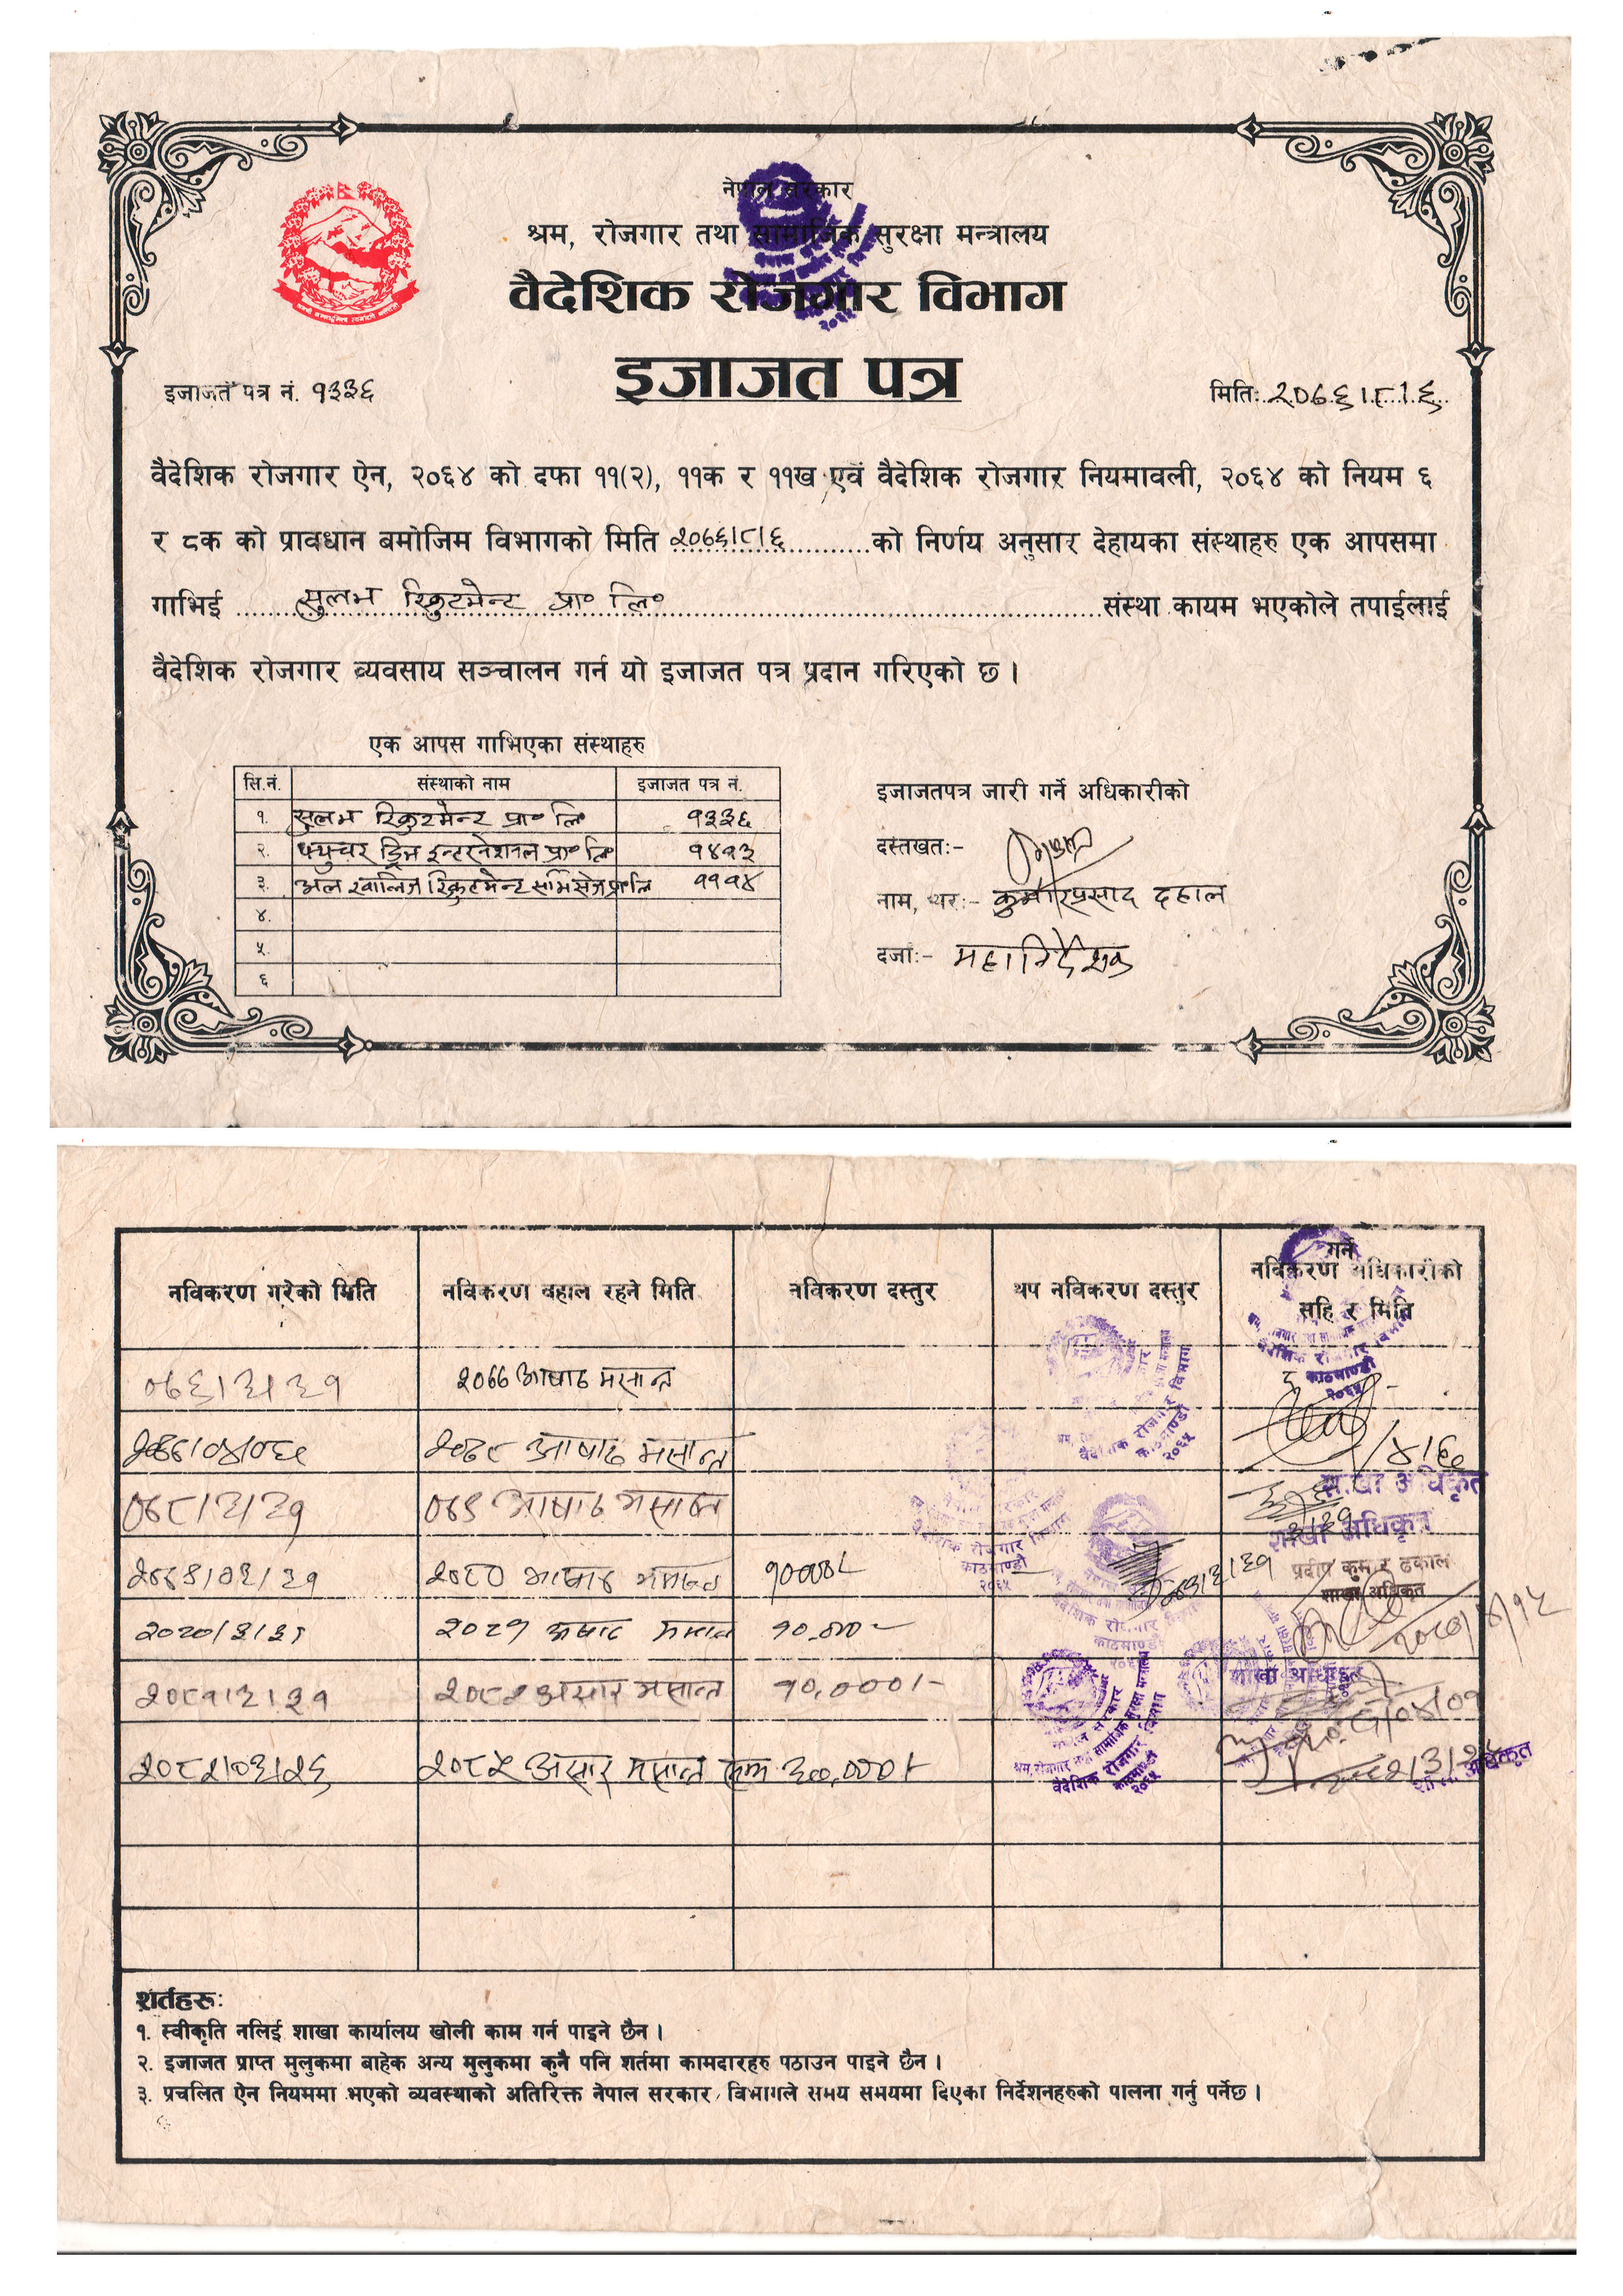 नेपाल सरकार
श्रम, रोजगार तथा सामाजिक सुरक्षा मन्त्रालय
वैदेशिक रोजगार विभाग
इजाजत पत्र
इजाजत पत्र नं. १३३६
मिति: २०७६।८।६
वैदेशिक रोजगार ऐन, २०६४ को दफा ११(२), ११क र ११ख एवं वैदेशिक रोजगार नियमावली, २०६४ को नियम ६
र ८क को प्रावधान बमोजिम विभागको मिति २०७६।८।६ को निर्णय अनुसार देहायका संस्थाहरु एक आपसमा
गाभिई सुलभ रिक्रुटमेन्ट प्रा० लि० संस्था कायम भएकोले तपाईलाई
वैदेशिक रोजगार व्यवसाय सञ्चालन गर्न यो इजाजत पत्र प्रदान गरिएको छ।
एक आपस गाभिएका संस्थाहरु
सि.नं. संस्थाको नाम इजाजत पत्र नं.
१. सुलभ रिक्रुटमेन्ट प्रा० लि० १३३६
२. फ्युचर ड्रिम इन्टरनेशनल प्रा० लि० १४१३
३. अल खालिज रिक्रुटमेन्ट सर्भिसेज प्रा लि १११४
४.
५.
६
इजाजतपत्र जारी गर्ने अधिकारीको
दस्तखत:-
नाम, थर:- कुमार प्रसाद दहाल
दर्जा:- महानिर्देशक
नविकरण गरेको मिति नविकरण वहाल रहने मिति नविकरण दस्तुर थप नविकरण दस्तुर नविकरण गर्ने अधिकारीको
सहि र मिति
०७६।३।३१ २०७७ आषाढ मसान्त
२०७८ आषाढ मसान्त
०७८।३।३१ ०७९ आषाढ मसान्त
२०७९।०३।३१ २०८० आषाढ मसान्त
२०८०।३।३१ २०८१ अषाढ मसान्त १०,०००-
२०८१।३।३१ २०८२ असार मसान्त १०,०००।-
२०८२।०३।२६ २०८५ असार मसान्त सम्म ३००,०००।-
शाखा अधिकृत
प्रदीप कुमार ढकाल
शाखा अधिकृत
वैदेशिक रोजगार विभाग
काठमाण्डौ
२०६५
शर्तहरू:
१. स्वीकृति नलिई शाखा कार्यालय खोली काम गर्न पाइने छैन।
२. इजाजत प्राप्त मुलुकमा बाहेक अन्य मुलुकमा कुनै पनि शर्तमा कामदारहरु पठाउन पाइने छैन।
३. प्रचलित ऐन नियममा भएको व्यवस्थाको अतिरिक्त नेपाल सरकार, विभागले समय समयमा दिएका निर्देशनहरुको पालना गर्नु पर्नेछ।